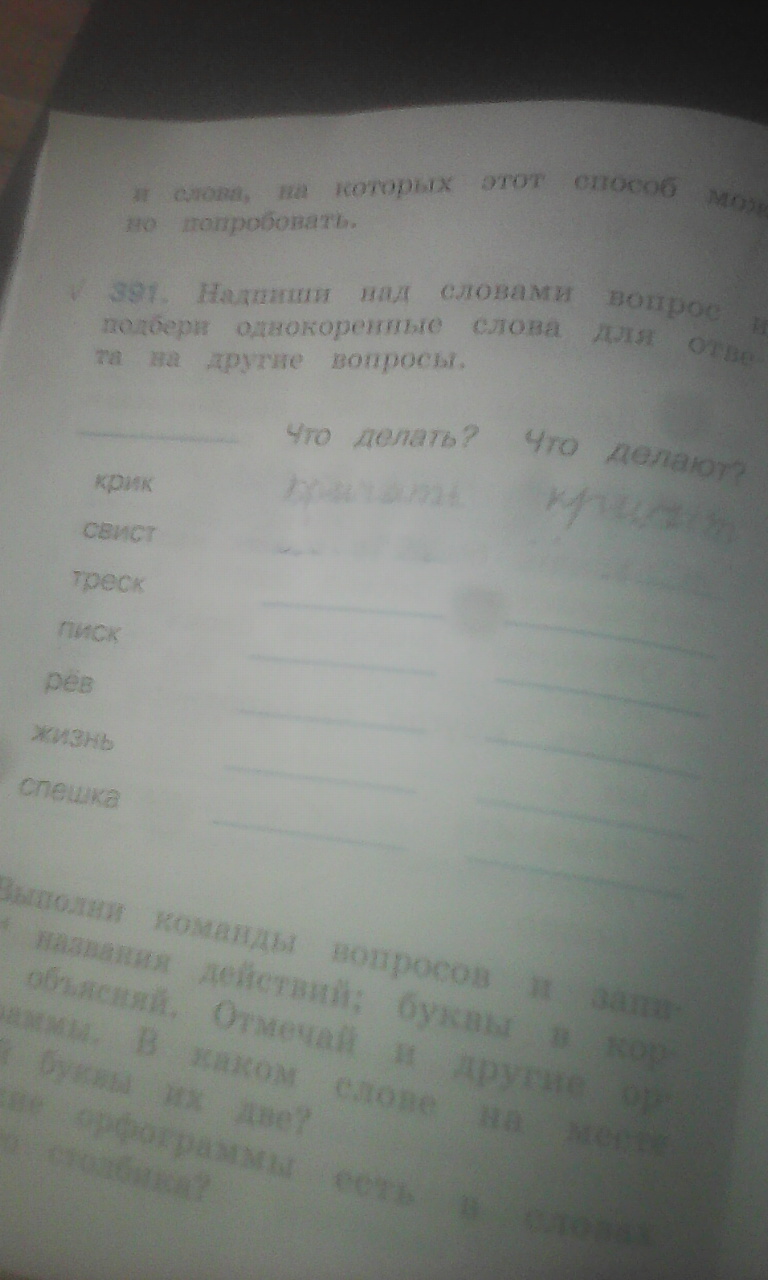 и слова, на которых этот способ мож
но попробовать.
√ 391. Надпиши над словами вопрос и
подбери однокоренные слова для отве-
та на другие вопросы.
Что делать? Что делают?
крик кричать кричат
свист
треск
писк
рёв
жизнь
спешка
Выполни команды вопросов и запи-
названия действий; буквы в кор-
объясняй. Отмечай и другие ор-
раммы. В каком слове на месте
й буквы их две?
орфограммы есть в словах
столбика?